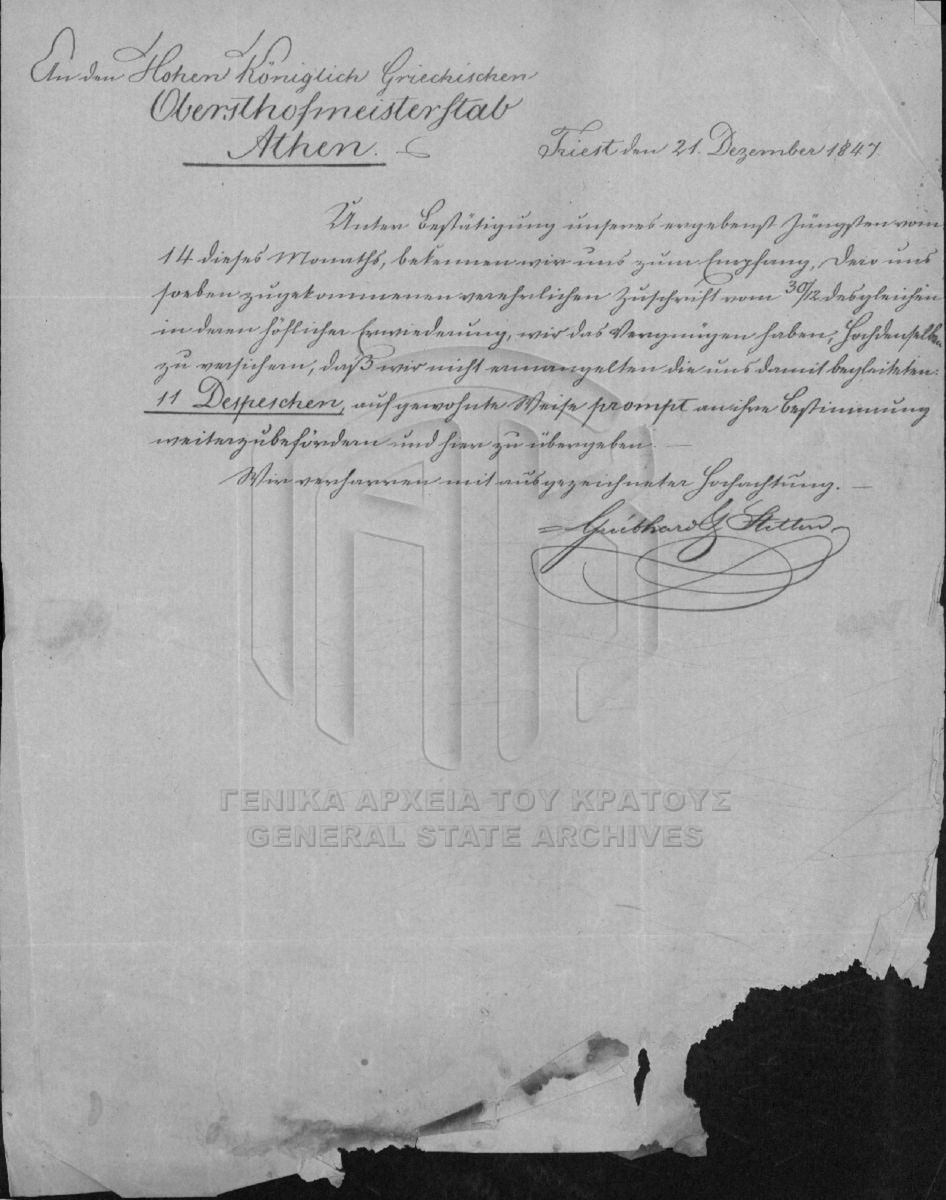 An den Hohen Königlich Griechischen
Obersthofmeisterstab
Athen.
Triest den 21. Dezember 1847
Unter Bestätigung unseres ergebenst Jüngsten vom
14 dieses Monaths, bekennen wir uns zum Empfang, Dero uns
soeben zugekommenen verehrlichen Zuschrift vom desgleichen
in deren höflicher Erwiederung, wir das Vergnügen haben, Hochdenselben
zu versichern, daß wir nicht ermangelten die uns damit begleiteten:
11 Depeschen, auf gewohnte Weise prompt an ihre Bestimmung
weiterzubefördern und hier zu übergeben. —
Wir verharren mit ausgezeichneter Hochachtung. —
ΓΕΝΙΚΑ ΑΡΧΕΙΑ ΤΟΥ ΚΡΑΤΟΥΣ
GENERAL STATE ARCHIVES